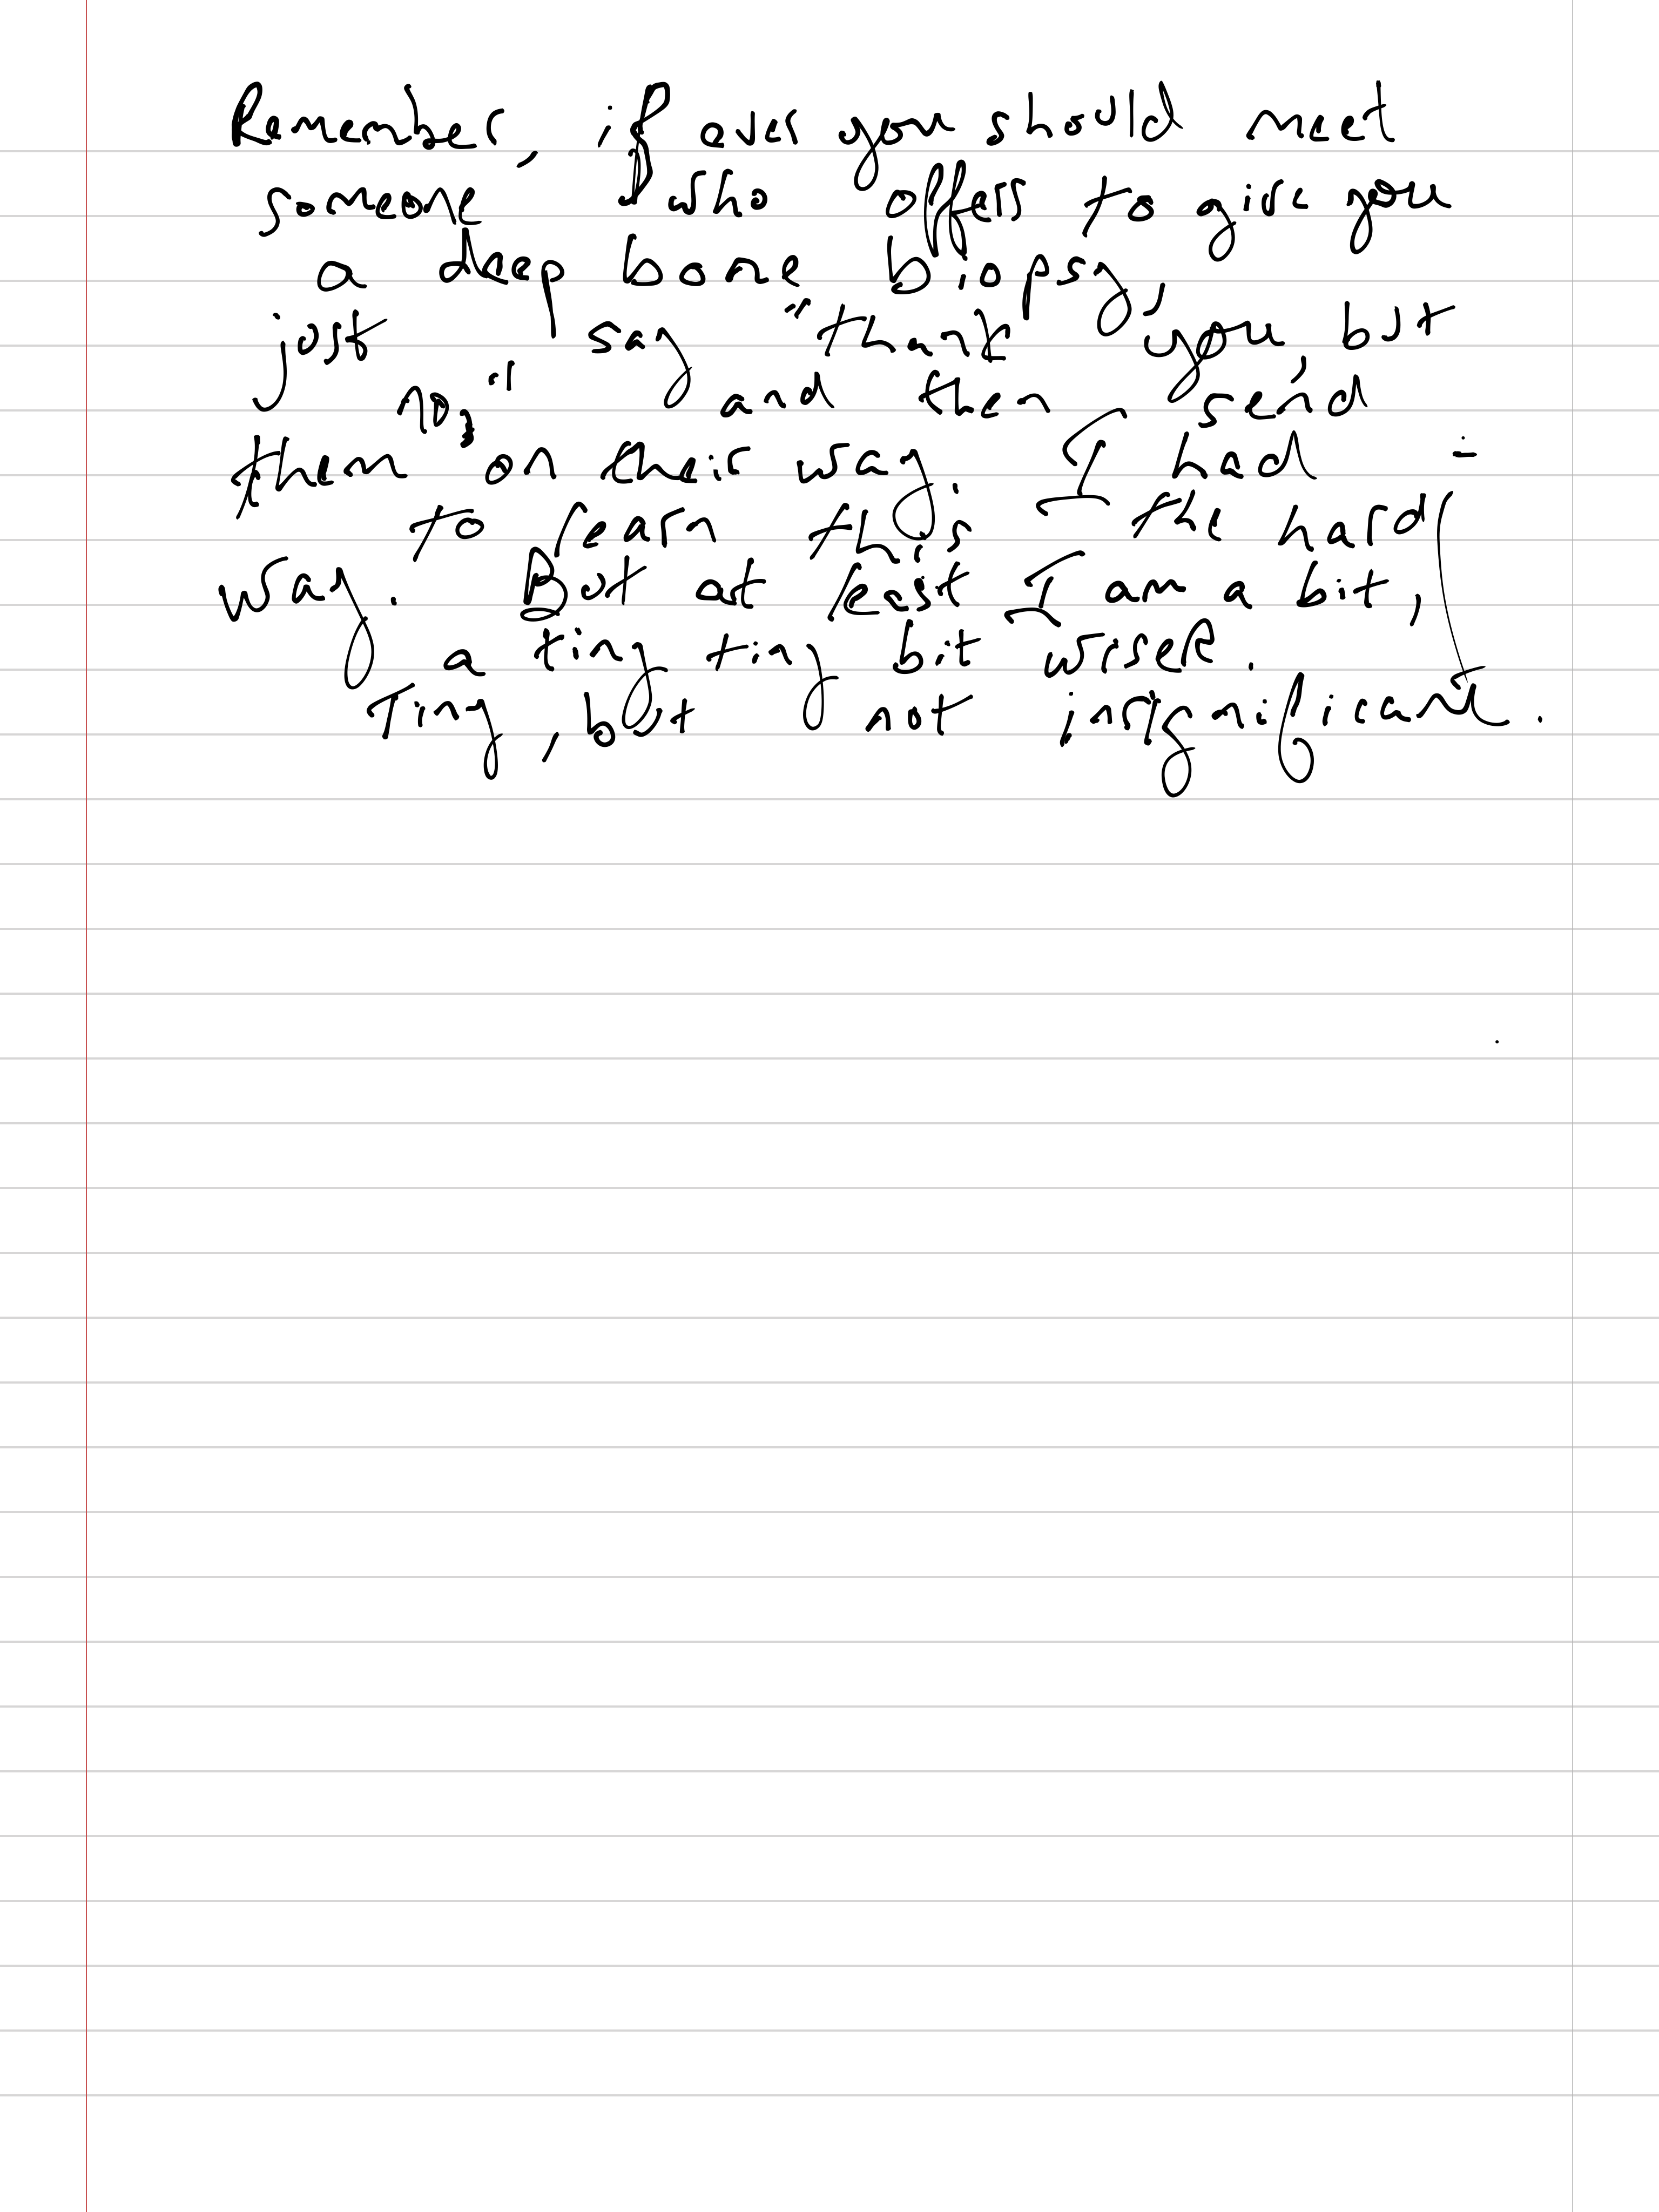 Remember, if ever you should meet
someone who offers to give you
a deep bone biopsy,
just say "thank you, but
no," and then send
them on their way. I had
to learn this the hard
way. But at least I am a bit,
a tiny tiny bit wiser.
Tiny, but not insignificant.